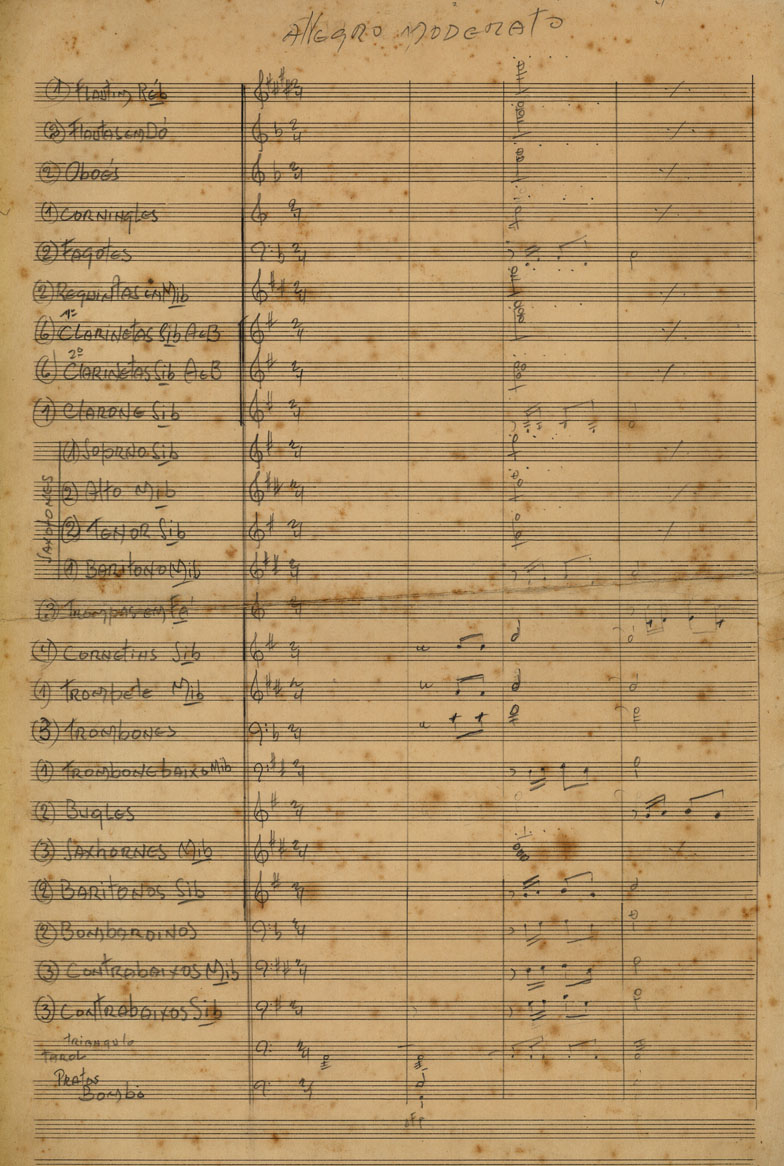 Allegro Moderato
(1) Flautim Réb
(2) Flautas em Dó
(2) Oboés
(1) Corningles
(2) Fagotes
(2) Requintas em Mib
1º
(6) Clarinetas Sib A e B
2º
(6) Clarinetas Sib A e B
(1) Clarone Sib
Saxofones
(1) Soprano Sib
(2) Alto Mib
(2) Tenor Sib
(1) Baritono Mib
(3) Trompas em Fá
(4) Cornetins Sib
(1) Trompete Mib
(3) Trombones
(1) Trombone baixo Mib
(2) Bugles
(3) Saxhornes Mib
(2) Baritonos Sib
(2) Bombardinos
(3) Contrabaixos Mib
(3) Contrabaixos Sib
Triangulo
Tarol
Pratos
Bombo